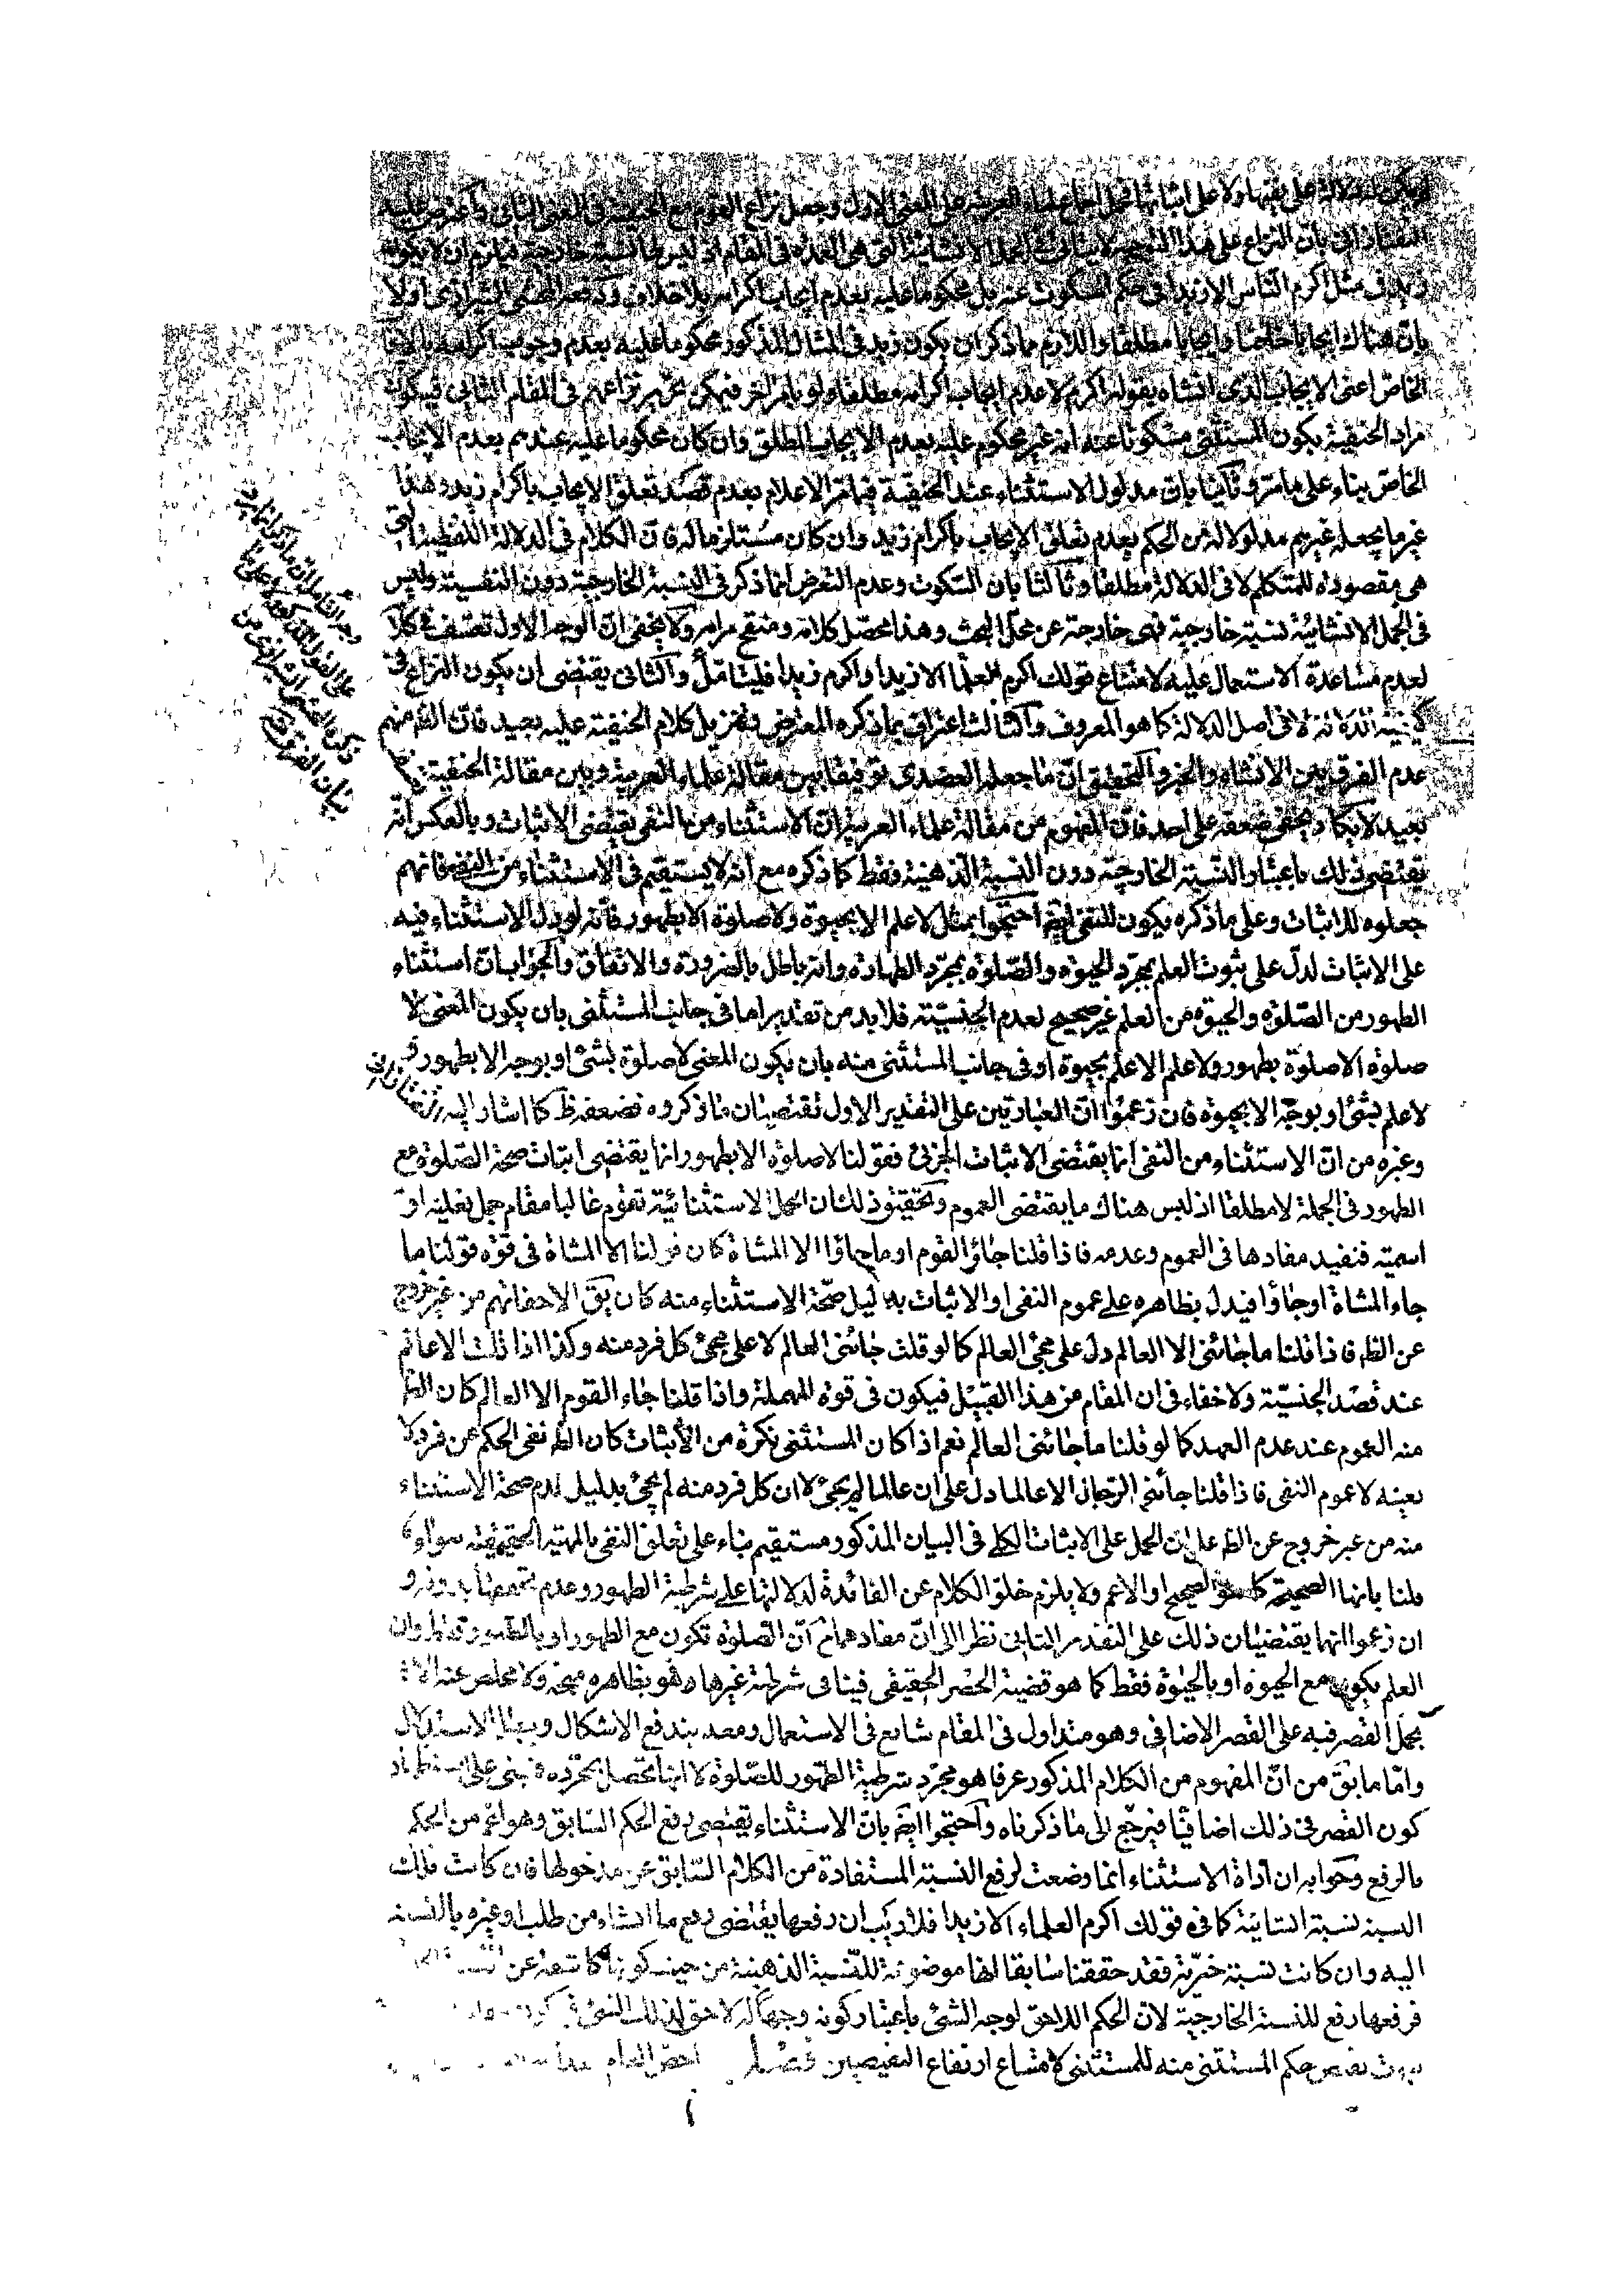 لم يكن له دلالة على نفيها ولا على اثباتها فحمل اجماع علماء العربية على المعنى الاول وجعل نزاع القوم مع الحنفية في المعنى الثاني واعترض عليه
التفتازاني بان النزاع على هذا التوجيه لا يتأتى في الجمل الانشائية التي هي العمدة في المقام اذ ليس لها نسبة خارجية فيلزم ان لا يكون
زيد في مثل اكرم الناس الا زيدا في حكم المسكوت عنه بل محكوما عليه بعدم ايجاب اكرامه بلا خلاف ودفعه المحشى الشيرازي اولا
بان هناك ايجابا خاصا وايجابا مطلقا واللازم مما ذكر ان يكون زيد في المثال المذكور محكوما عليه بعدم وجوب اكرامه بالايجاب
الخاص اعنى الايجاب الذى انشاه بقوله اكرم لا عدم ايجاب اكرامه مطلقا ولو بامر اخر فيمكن تحرير نزاعهم في المقام الثاني فيكون
مراد الحنفية بكون المستثنى مسكوتا عنه انه غير محكوم عليه بعدم الايجاب المطلق وان كان محكوما عليه عندهم بعدم الايجاب
الخاص بناء على ما مر وثانيا بان مدلول الاستثناء عند الحنفية فيما مر الاعلام بعدم قصد تعلق الايجاب باكرام زيد وهذا
غير ما يجعله غيرهم مدلولا له من الحكم بعدم تعلق الايجاب باكرام زيد وان كان مستلزما له فان الكلام في الدلالة اللفظية التى
هي مقصودة للمتكلم لا في الدلالة مطلقا وثالثا بان السكوت وعدم التعرض انما ذكر في النسبة الخارجية دون النفسية وليس
في الجمل الانشائية نسبة خارجية فهى خارجة عن محل البحث وهذا محصل كلامه ومنقح مرامه ولا يخفى ان الوجه الاول تعسف
لعدم مساعدة الاستعمال عليه لامتناع قولك اكرم العلما الا زيدا واكرم زيدا فليتامل والثانى يقتضى ان يكون النزاع في
كيفية الدلالة لا في اصل الدلالة كما هو المعروف والثالث اعتراف بما ذكره المعترض وتنزيل كلام الحنفية عليه بعيد فان الظ منهم
عدم الفرق بين الانشاء والخبر والتحقيق ان ما جعله العضدى توفيقا بين مقالة علماء العربية وبين مقالة الحنفية
بعيد لا يكاد يخفى ضعفه على احد فان المفهوم من مقالة علماء العربية ان الاستثناء من النفى يقتضى الاثبات وبالعكس انه
يقتضى ذلك باعتبار النسبة الخارجية دون النسبة الذهنية فقط كما ذكره مع انه لا يستقيم في الاستثناء من النفى فانهم
جعلوه للاثبات وعلى ما ذكره يكون للنفى ايض احتجوا بمثل لا علم الا بحيوة ولا صلوة الا بطهور فانه لو دل الاستثناء فيه
على الاثبات لدل على ثبوت العلم بمجرد الحيوة والصلوة بمجرد الطهارة وانه باطل بالضرورة والاتفاق والجواب ان استثناء
الطهور من الصلوة والحيوة من العلم غير صحيح لعدم الجنسية فلا بد من تقدير اما في جانب المستثنى بان يكون المعنى لا
صلوة الا صلوة بطهور ولا علم الا علم بحيوة او في جانب المستثنى منه بان يكون المعنى لا صلوة بشئ او بوجه الا بطهور و
لا علم بشئ او بوجه الا بحيوة فان زعموا ان العبارتين على التقدير الاول تقتضيان ما ذكروه فضعفه ظ كما اشار اليه التفتازانى
وغيره من ان الاستثناء من النفى انما يقتضى الاثبات الجزئى فقولنا لا صلوة الا بطهور انما يقتضى اثبات صحة الصلوة مع
الطهور في الجملة لا مطلقا اذ ليس هناك ما يقتضى العموم وتحقيق ذلك ان الجمل الاستثنائية تقوم غالبا مقام جمل فعلية او
اسمية فتفيد مفادها في العموم وعدمه فاذا قلنا جاؤا القوم او ما جاؤا الا المشاة كان قولنا الا المشاة في قوة قولنا ما
جاء المشاة او جاؤا فيدل بظاهره على عموم النفى او الاثبات بدليل صحة الاستثناء منه كان يق الا حفاتهم من غير خروج
عن الظ فاذا قلنا ما جائنى الا العالم دل على مجئ العالم كما لو قلت جائنى العالم لا على مجئ كل فرد منه وكذا اذا قلت الا عالم
عند قصد الجنسية ولا خفاء في ان المقام من هذا القبيل فيكون في قوة المهملة واذا قلنا جاء القوم الا العالم كان الظ
منه العموم عند عدم العهد كما لو قلنا ما جائنى العالم نعم اذا كان المستثنى نكرة من الاثبات كان الظ نفى الحكم عن فرد لا
بعينه لا عموم النفى فاذا قلنا جائنى الرجال الا عالما دل على ان عالما لم يجئ لا ان كل فرد منه لم يجئ بدليل عدم صحة الاستثناء
منه من غير خروج عن الظ على ان الحمل على الاثبات الكلى في البيان المذكور مستقيم بناء على تعلق النفى بالمهية الحقيقية سواء
قلنا بانها الصحيحة كما هو الصحيح او الاعم ولا يلزم خلو الكلام عن الفائدة لدلالتها على شرطية الطهور وعدم تحققها بدونه و
ان زعموا انهما يقتضيان ذلك على التقدير الثانى نظرا الى ان مفادهما ان الصلوة تكون مع الطهور او بالطهور فقط وان
العلم يكون مع الحيوة او بالحيوة فقط كما هو قضية الحصر الحقيقى فينافى شرطية غيرها فهو بظاهره متجه ولا مخلص عنه الا
بحمل القصر فيه على القصر الاضافى وهو متداول في المقام شايع في الاستعمال ومعه يندفع الاشكال ويبطل الاستدلال
واما ما يق من ان المفهوم من الكلام المذكور عرفا هو مجرد شرطية الطهور للصلوة لا انها تحصل بمجرده فمبنى على استظهار
كون القصر في ذلك اضافيا فيرجع الى ما ذكرناه واحتجوا ايض بان الاستثناء يقتضى رفع الحكم السابق وهو اعم من الحكم
بالرفع وجوابه ان اداة الاستثناء انما وضعت لرفع النسبة المستفادة من الكلام السابق عن مدخولها فان كانت تلك
النسبة نسبة انشائية كما في قولك اكرم العلماء الا زيدا فلا ريب ان رفعها يقتضى رفع ما انشاء من طلب او غيره بالنسبة
اليه وان كانت نسبة خبرية فقد حققنا سابقا انها موضوعة للنسبة الذهنية من حيث كونها كاشفة عن
فرفعها رفع للنسبة الخارجية لان الحكم اللاحق لوجه الشئ باعتبار كونه وجها له لاحق لذلك الشئ
ثبوت نقيض حكم المستثنى منه للمستثنى لامتناع ارتفاع النقيضين فصل
وجه التامل ان ما ذكرنا
على القول المذكور
ذكره المحشى الشيرازى من
بيان الفرق